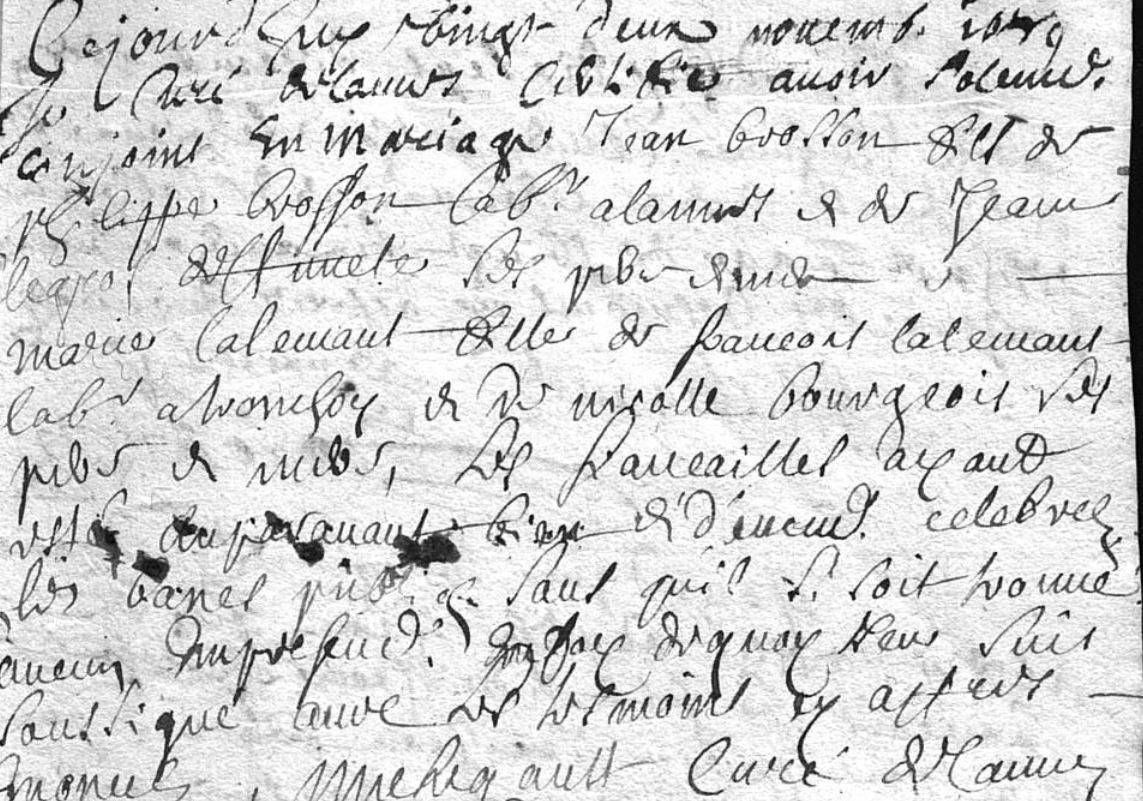 Cejourdhuy vingt deux novemb. 1679
Je Curé delannes Certifie avoir solemn.
conjoint En mariage Jean brosson fils de
philippe brosson lab.r alannes & de Jeanne
legros deffuncte ses pere & mere &
marie lalemant fille de francois lalemant
lab.r a & de nicolle bourgeois ses
peres & meres, les fiancailles ayant
esté auparavant bien & d'euem.t celebrees
les bancs publiq. sans quil se soit trouvé
aucun empeschem.t En foy dequoy Jeme suis
soussigné avec les tesmoins cy apres
Curé delannes